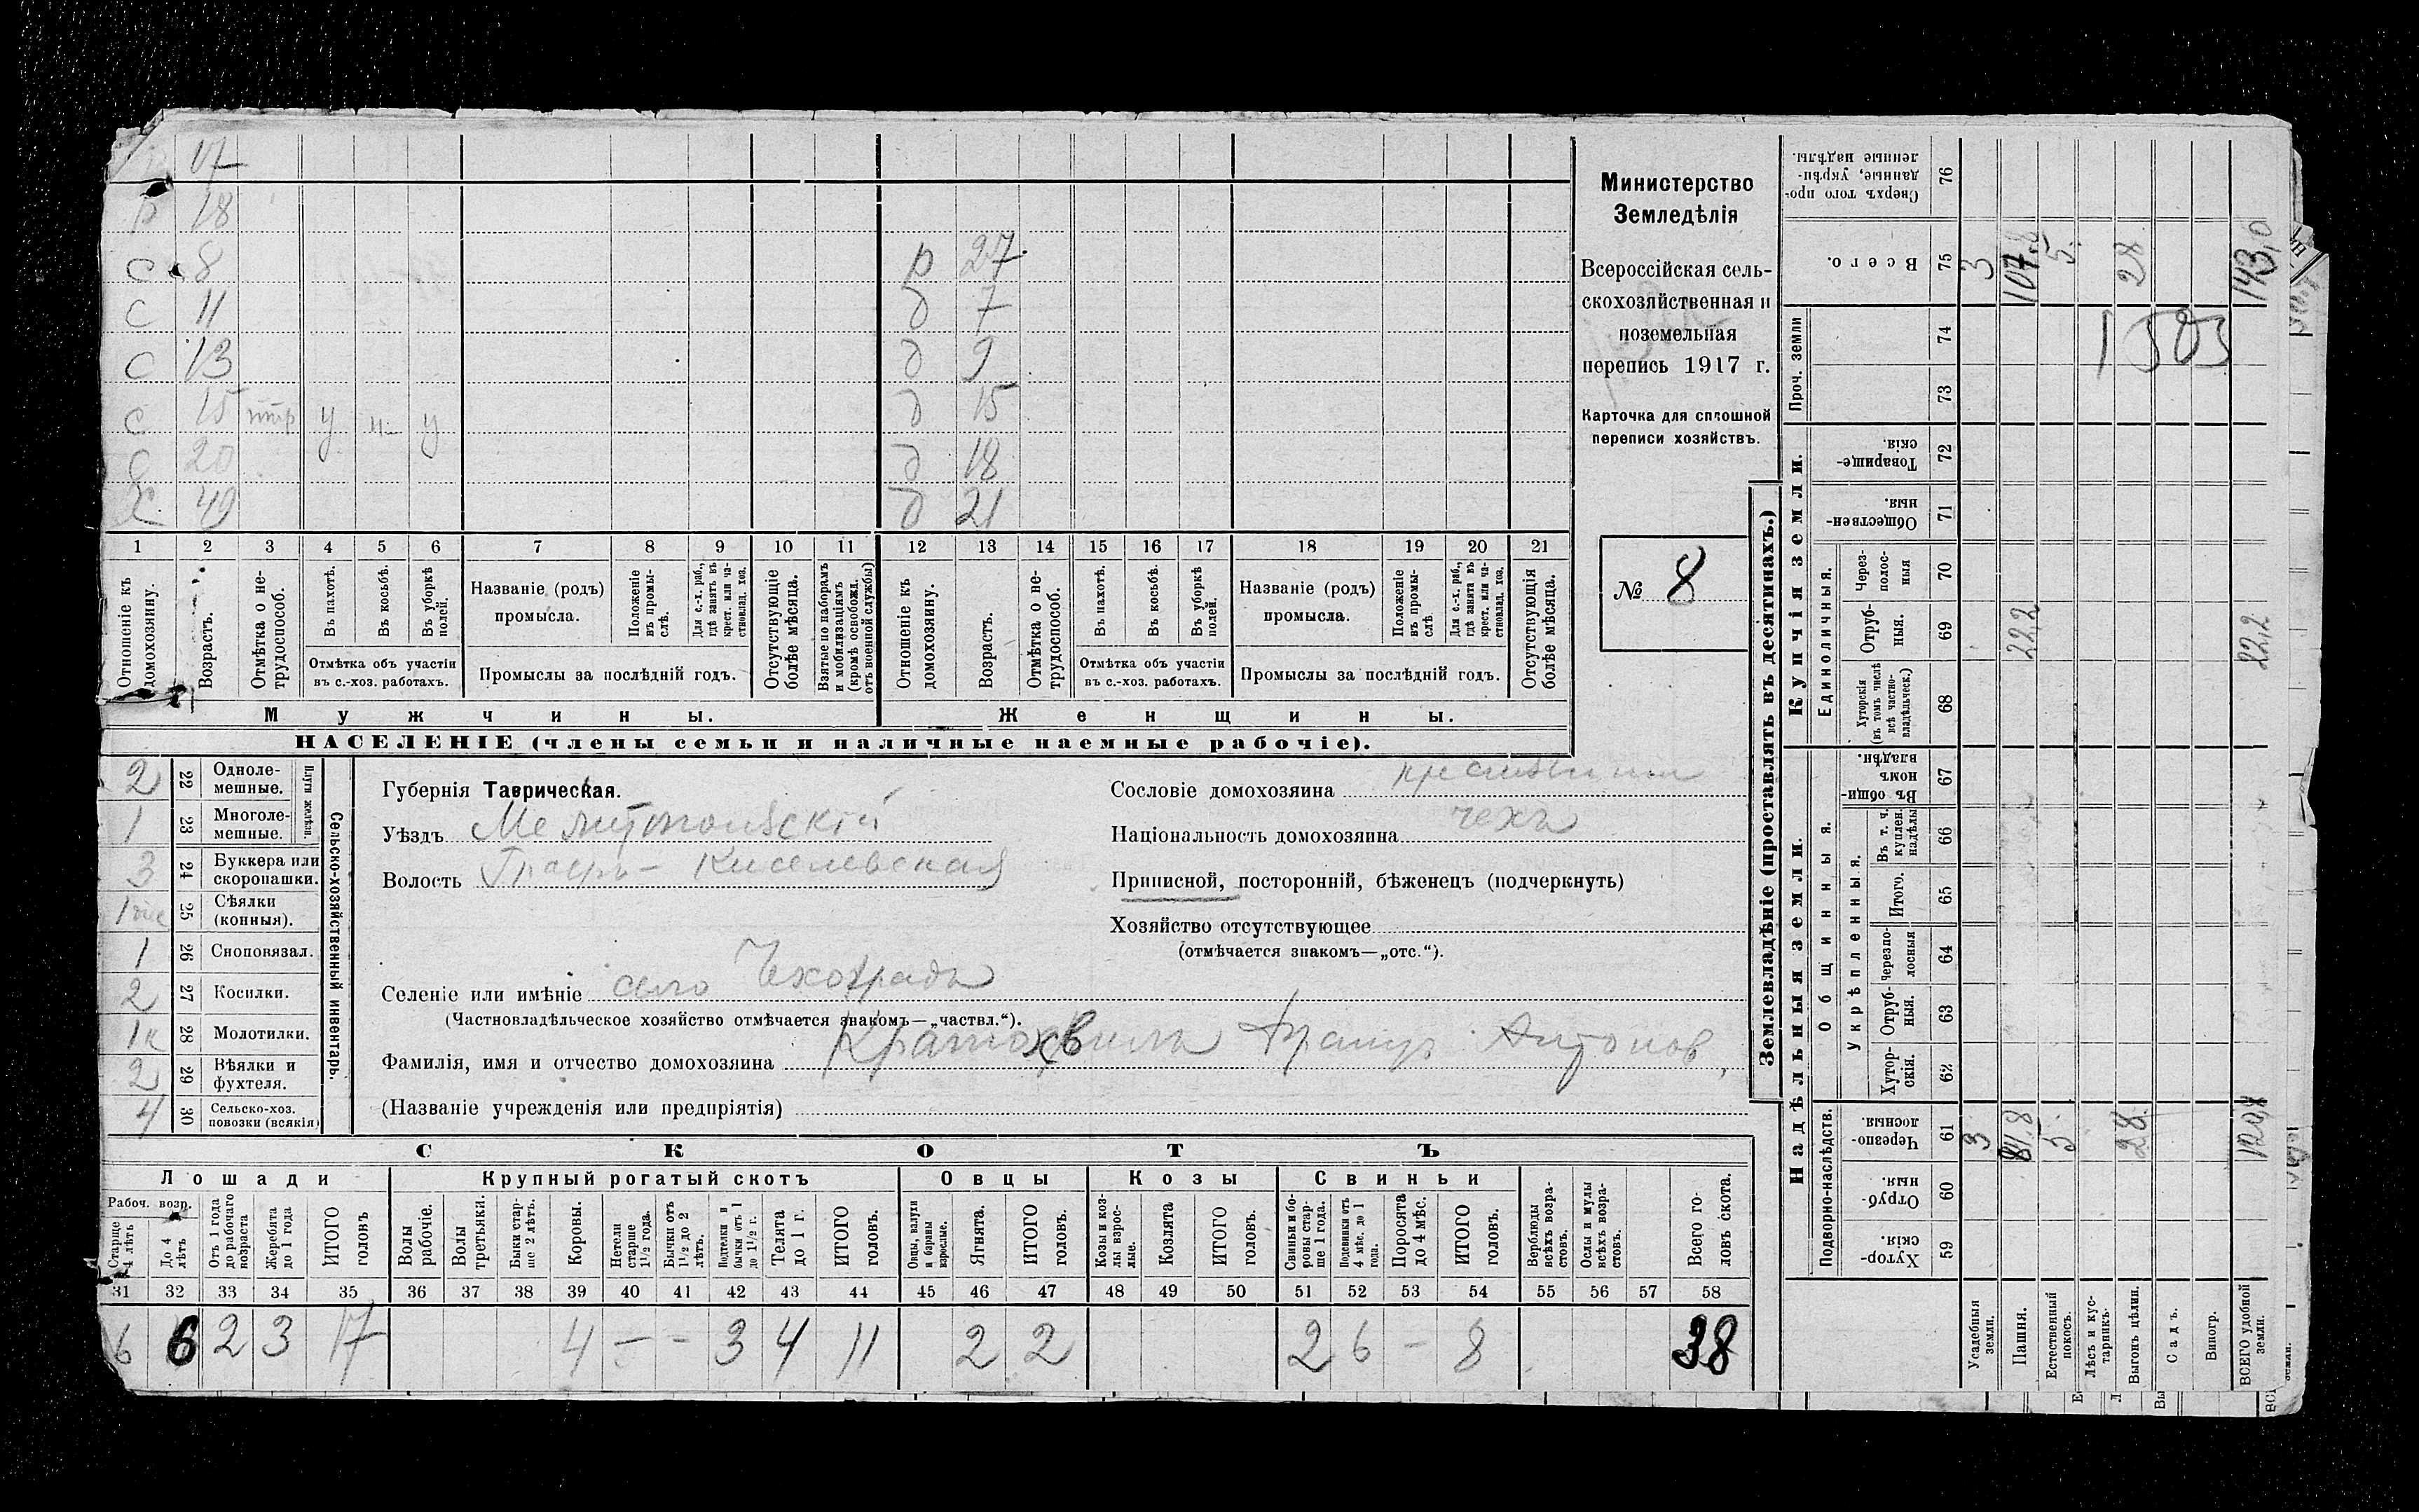 17
р 18
с 8 р 27
с 11 д 7
с 13 д 9
с 15 у у д 15
с 20 д 18
х. 49 д 21
1 2 3 4 5 6 7 8 9 10 11 12 13 14 15 16 17 18 19 20 21
Отношеніе къ домохозяину.
Возрастъ.
Отмѣтка о нетрудоспособ.
Въ пахотѣ.
Въ косьбѣ.
Въ уборкѣ полей.
Отмѣтка объ участіи
въ с.-хоз. работахъ.
Названіе (родъ)
промысла.
Положеніе въ промыслѣ.
Для с.-х. раб., гдѣ занятъ въ крест. или частновлад. хоз.
Промыслы за послѣдній годъ.
Отсутствующіе болѣе мѣсяца.
Взятые по наборамъ и мобилизаціямъ (кромѣ освобожд. отъ военной службы)
Отношеніе къ домохозяину.
Возрастъ.
Отмѣтка о нетрудоспособ.
Въ пахотѣ.
Въ косьбѣ.
Въ уборкѣ полей.
Отмѣтка объ участіи
въ с.-хоз. работахъ.
Названіе (родъ)
промысла.
Положеніе въ промыслѣ
Для с.-х. раб., гдѣ занята въ крест. или частновлад. хоз.
Промыслы за послѣдній годъ.
Отсутствующія болѣе мѣсяца.
Мужчины. Женщины.
НАСЕЛЕНІЕ (члены семьи и наличные наемные рабочіе).
Министерство
Земледѣлія
Всероссійская сель-
скохозяйственная и
поземельная
перепись 1917 г.
Карточка для сплошной
переписи хозяйствъ.
№ 8
2 22 Одноле-
мешные.
1 23 Многоле-
мешные.
Плуги желѣзн.
3 24 Буккера или
скоропашки.
1 25 Сѣялки
(конныя).
1 26 Сноповязал.
2 27 Косилки.
1к 28 Молотилки.
2 29 Вѣялки и
фухтеля.
4 30 Сельско-хоз.
повозки (всякія)
Сельско-хозяйственный инвентарь.
Губернія Таврическая.
Уѣздъ Мелитопольскій
Волость Графъ-Киселевская
Сословіе домохозяина крестьянин
Національность домохозяина чехъ
Приписной, посторонній, бѣженецъ (подчеркнуть)
Хозяйство отсутствующее
(отмѣчается знакомъ—„отс.“).
Селеніе или имѣніе село Чехоградъ
(Частновладѣльческое хозяйство отмѣчается знакомъ—„частвл.“).
Фамилія, имя и отчество домохозяина Кратохвила Францъ Антонов
(Названіе учрежденія или предпріятія)
СКОТЪ
Лошади Крупный рогатый скотъ Овцы Козы Свиньи
Рабоч. возр.
Старше 4 лѣтъ
До 4 лѣтъ
Отъ 1 года до рабочаго возраста
Жеребята до 1 года
ИТОГО головъ
Волы рабочіе.
Волы третьяки.
Быки старше 2 лѣтъ.
Коровы.
Нетели старше 1½ года.
Бычки отъ 1½ до 2 лѣтъ.
Подтелки и бычки отъ 1 до 1½ г.
Телята до 1 г.
ИТОГО головъ.
Овцы, валухи и бараны взрослые.
Ягнята.
ИТОГО головъ.
Козы и козлы взрослые.
Козлята
ИТОГО головъ.
Свиньи и боровы старше 1 года.
Подсвинки отъ 4 мѣс. до 1 года.
Поросята до 4 мѣс.
ИТОГО головъ.
Верблюды всѣхъ возрастовъ.
Ослы и мулы всѣхъ возрастовъ.
Всего головъ скота.
31 32 33 34 35 36 37 38 39 40 41 42 43 44 45 46 47 48 49 50 51 52 53 54 55 56 57 58
6 6 2 3 17 4 – – 3 4 11 2 2 2 6 – 8 38
Землевладѣніе (проставлять въ десятинахъ.)
Надѣльныя земли. Купчія земли.
Проч. земли
Подворно-наслѣдств.
Общинныя.
Укрѣпленныя.
Единоличныя.
Хуторскія. 59
Отрубныя. 60
Черезполосныя. 61
Хуторскія. 62
Отрубныя. 63
Черезполосныя 64
Итого. 65
Въ т. ч. куплен. надѣлы 66
Въ общинномъ владѣн. 67
Хуторскія (въ томъ числѣ всѣ частновладѣльческ.) 68
Отрубныя. 69
Черезполосныя 70
Общественныя 71
Товарищескія. 72
73
74
Всего. 75
Сверхъ того проданные, укрѣпленные надѣлы. 76
Усадебныя земли. 3 3
Пашня. 81,8 22,2 107,8
Естественный покосъ. 5 5
Лѣсъ и кустарникъ.
Выгонъ цѣлин. 28 28
Садъ.
Виногр.
ВСЕГО удобной земли. 120,8 22,2 143,0
1503